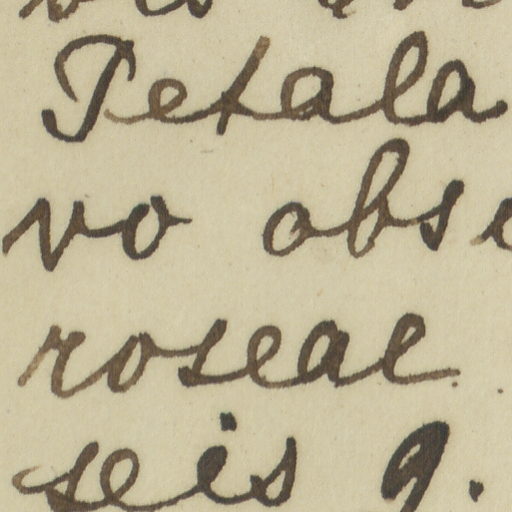 Petala
vo obs
roseae
seis 9.